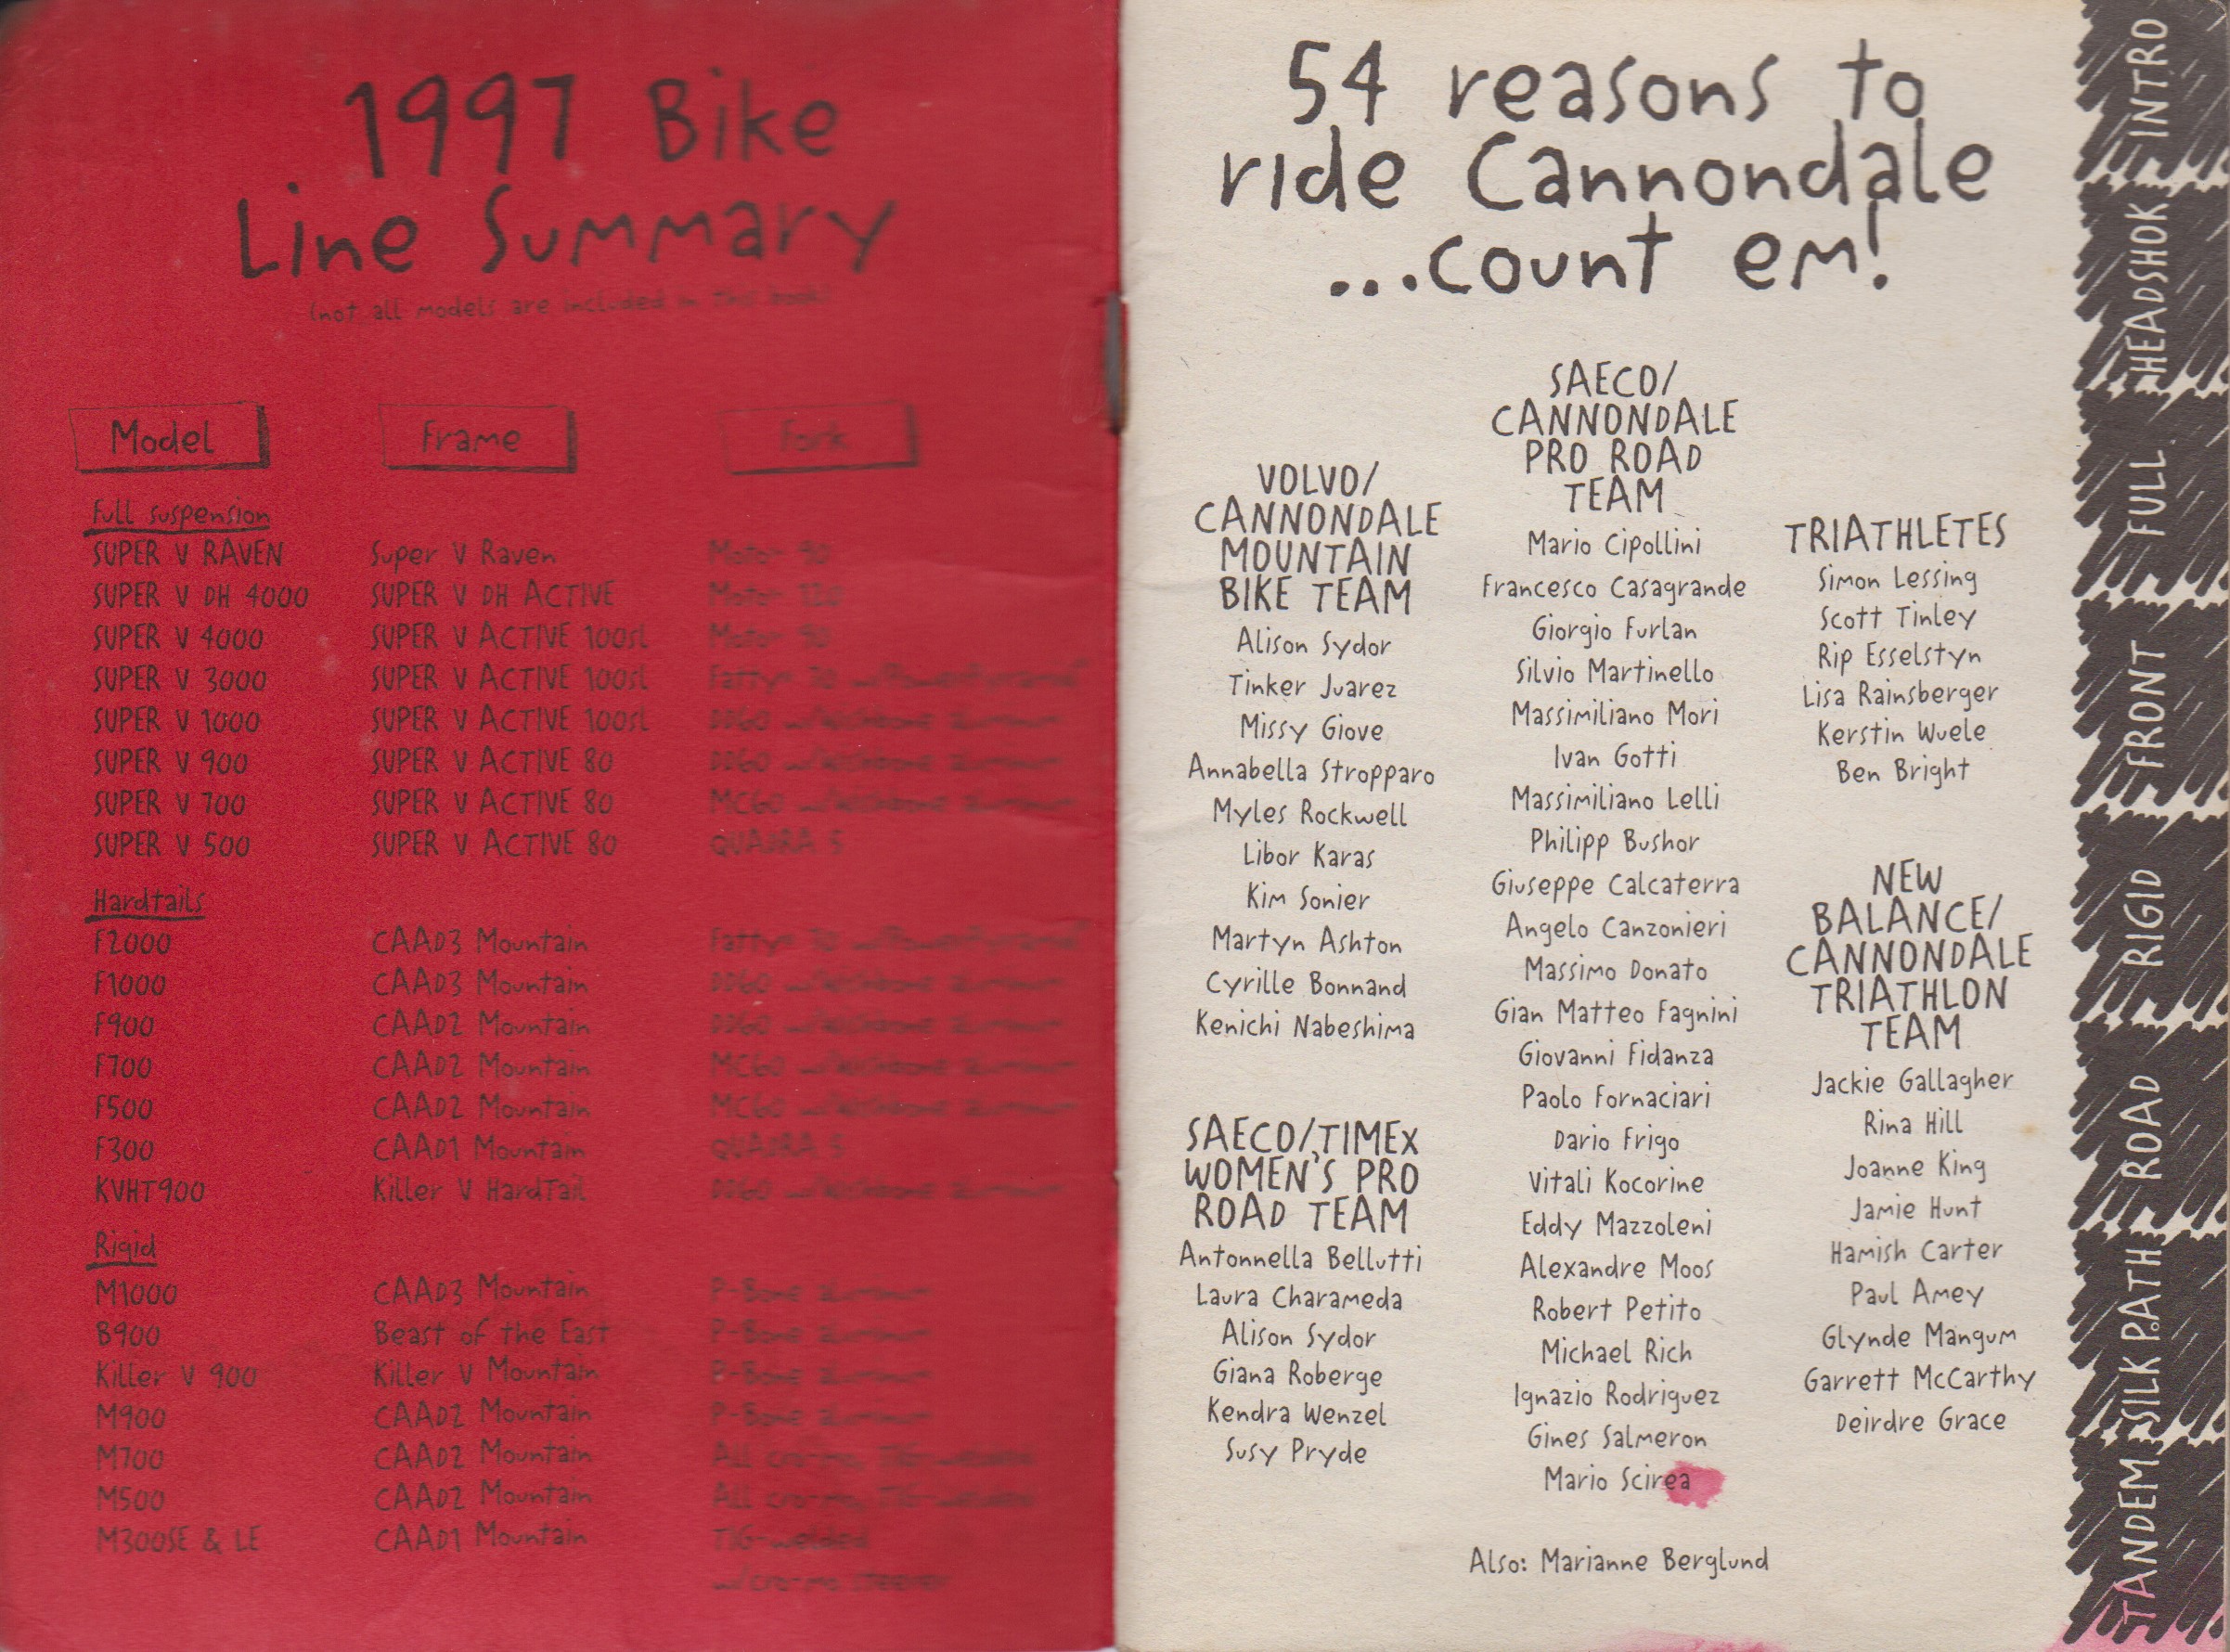 1997 Bike
Line Summary
(not all models are included in this book)
Model Frame Fork
Full suspension
SUPER V RAVEN Super V Raven Moto 90
SUPER V DH 4000 SUPER V DH ACTIVE Moto 120
SUPER V 4000 SUPER V ACTIVE 100sl Moto 90
SUPER V 3000 SUPER V ACTIVE 100sl
SUPER V 1000 SUPER V ACTIVE 100sl DD60
SUPER V 900 SUPER V ACTIVE 80 DD60
SUPER V 700 SUPER V ACTIVE 80 MC60
SUPER V 500 SUPER V ACTIVE 80 QUADRA 5
Hardtails
F2000 CAAD3 Mountain
F1000 CAAD3 Mountain DD60
F900 CAAD2 Mountain DD60
F700 CAAD2 Mountain MC60
F500 CAAD2 Mountain MC60
F300 CAAD1 Mountain QUADRA 5
KVHT900 Killer V HardTail DD60
Rigid
M1000 CAAD3 Mountain P-Bone
B900 Beast of the East P-Bone
Killer V 900 Killer V Mountain P-Bone
M900 CAAD2 Mountain P-Bone
M700 CAAD2 Mountain All cro-mo, TIG-welded
M500 CAAD2 Mountain All cro-mo, TIG-welded
M300SE & LE CAAD1 Mountain TIG-welded
w/cro-mo steerer
54 reasons to
ride Cannondale
...count em!
VOLVO/
CANNONDALE
MOUNTAIN
BIKE TEAM
Alison Sydor
Tinker Juarez
Missy Giove
Annabella Stropparo
Myles Rockwell
Libor Karas
Kim Sonier
Martyn Ashton
Cyrille Bonnand
Kenichi Nabeshima
SAECO/TIMEX
WOMEN'S PRO
ROAD TEAM
Antonnella Bellutti
Laura Charameda
Alison Sydor
Giana Roberge
Kendra Wenzel
Susy Pryde
SAECO/
CANNONDALE
PRO ROAD
TEAM
Mario Cipollini
Francesco Casagrande
Giorgio Furlan
Silvio Martinello
Massimiliano Mori
Ivan Gotti
Massimiliano Lelli
Philipp Bushor
Giuseppe Calcaterra
Angelo Canzonieri
Massimo Donato
Gian Matteo Fagnini
Giovanni Fidanza
Paolo Fornaciari
Dario Frigo
Vitali Kocorine
Eddy Mazzoleni
Alexandre Moos
Robert Petito
Michael Rich
Ignazio Rodriguez
Gines Salmeron
Mario Scirea
TRIATHLETES
Simon Lessing
Scott Tinley
Rip Esselstyn
Lisa Rainsberger
Kerstin Wuele
Ben Bright
NEW
BALANCE/
CANNONDALE
TRIATHLON
TEAM
Jackie Gallagher
Rina Hill
Joanne King
Jamie Hunt
Hamish Carter
Paul Amey
Glynde Mangum
Garrett McCarthy
Deirdre Grace
Also: Marianne Berglund
INTRO
HEADSHOK
FULL
FRONT
RIGID
ROAD
SILK PATH
TANDEM